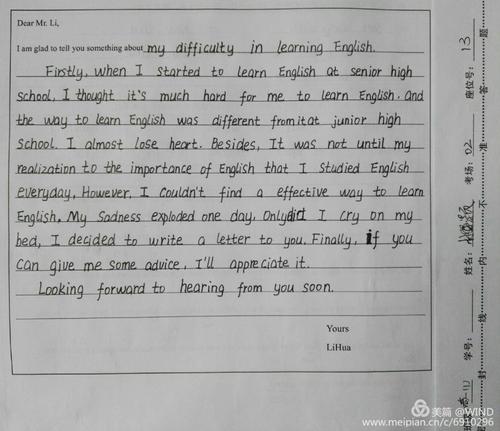 Dear Mr. Li,
I am glad to tell you something about my difficulty in learning English.
Firstly, when I started to learn English at senior high
school, I thought it's much hard for me to learn English. And
the way to learn English was different from it at junior high
school. I almost lose heart. Besides, It was not until my
realization to the importance of English that I studied English
everyday, However, I couldn't find a effective way to learn
English. My Sadness exploded one day, Only did I cry on my
bed, I decided to write a letter to you. Finally, if you
can give me some advice, I'll appreciate it.
Looking forward to hearing from you soon.
Yours
LiHua
座位号: 13
考场: 02
姓名:
学号:
密 封 线 内 不 准 答 题
美篇 @WIND
www.meipian.cn/c/6910296